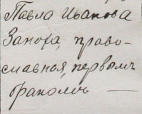 Павла Иванова
Занота, право-
славная, первымъ
бракомъ —